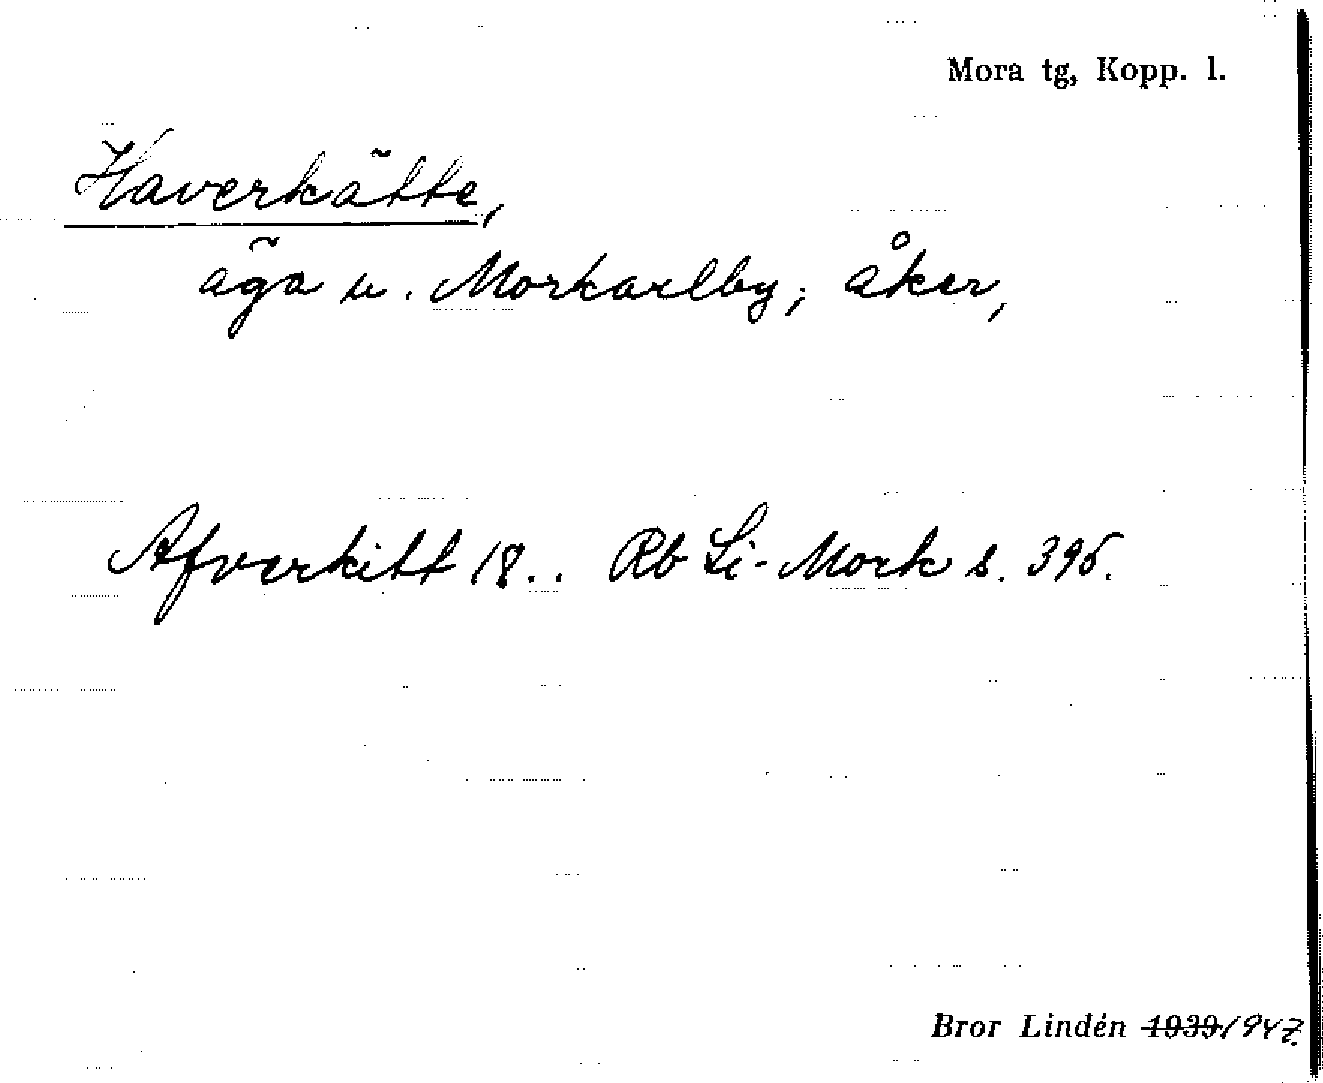 Mora tg, Kopp. l.
Haverkätte,
äga u. Morkarlby; åker,
Afverkitt 18.. Rb Li-Mork s. 395.
Bror Lindén 1939 1947.